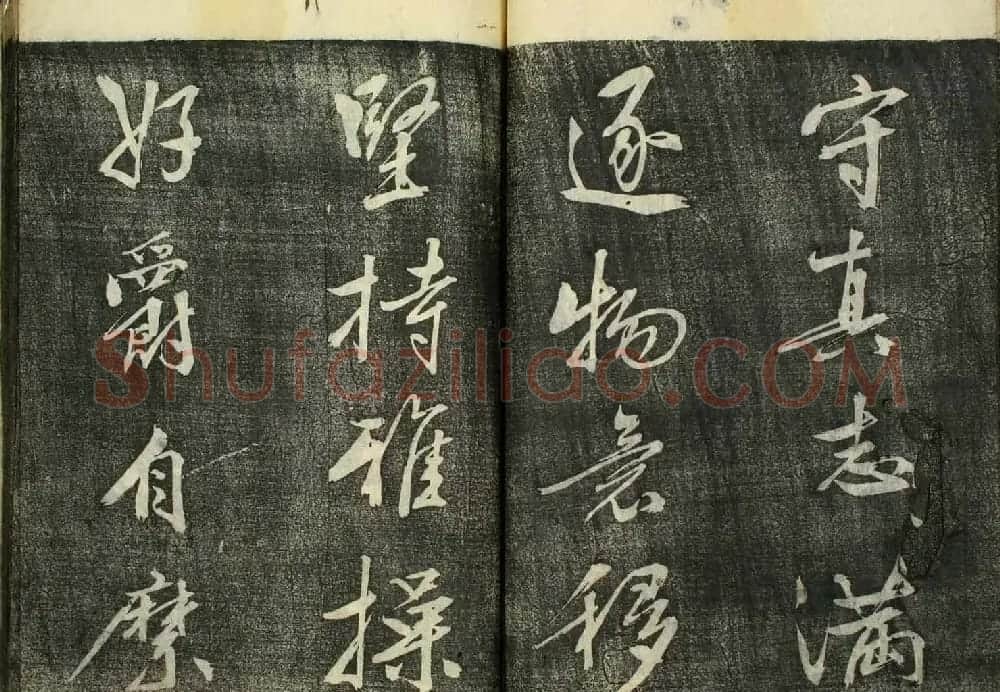 守真志滿
逐物意移
堅持雅操
好爵自縻
Shufaziliao.COM